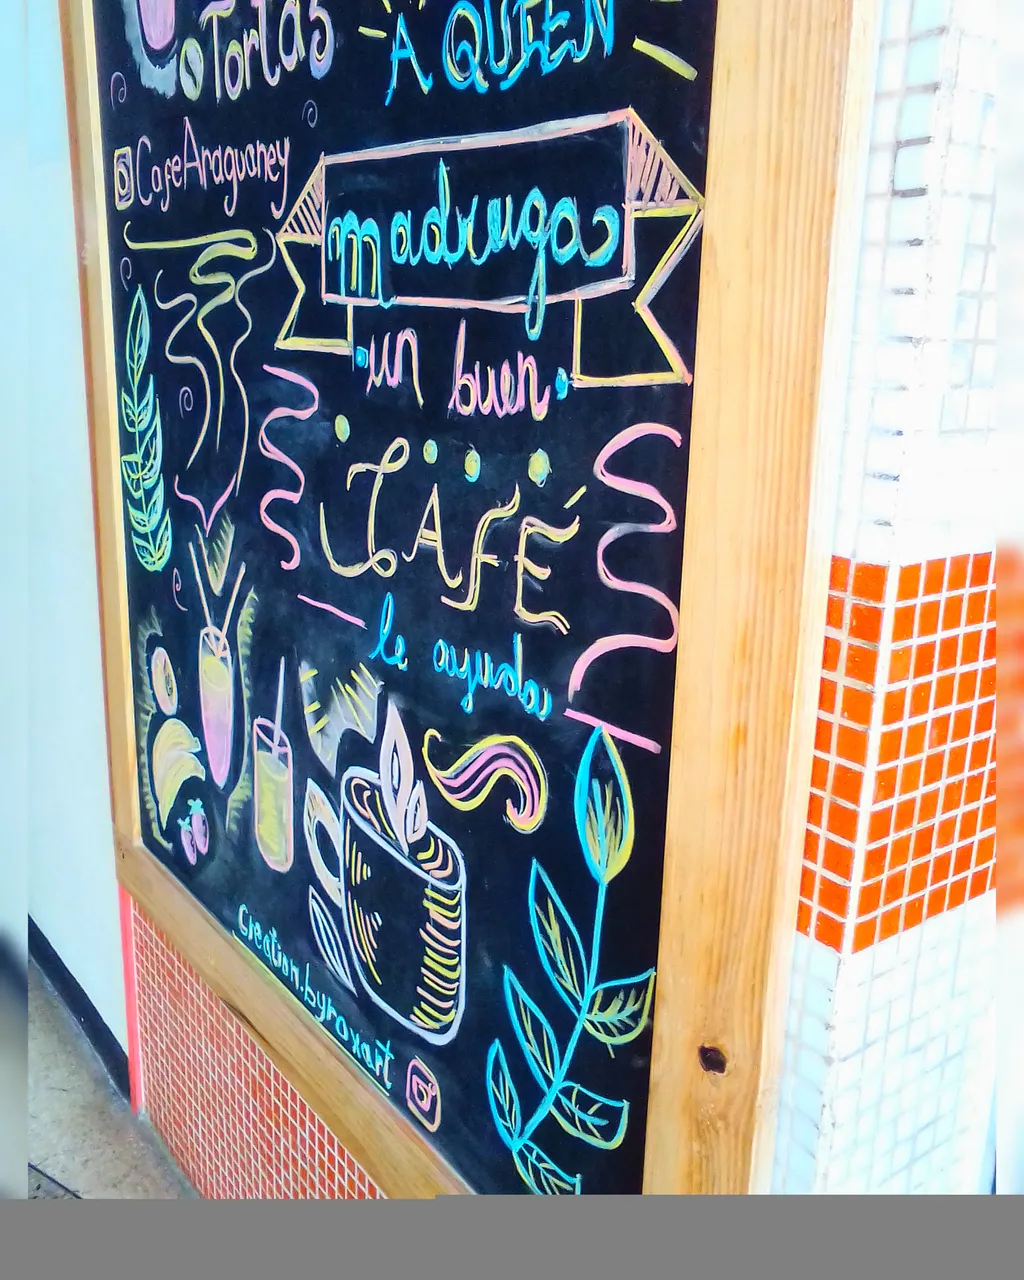 Tortas
A QUIEN
CafeAraguaney
madruga
un buen
CAFÉ
le ayuda
creation.byroxart